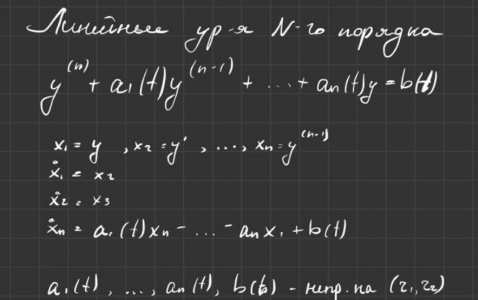 Линейные ур-я N-го порядка
y⁽ⁿ⁾ + a₁(t)y⁽ⁿ⁻¹⁾ + ... + aₙ(t)y = b(t)
x₁ = y , x₂ = y' , ..., xₙ = y⁽ⁿ⁻¹⁾
ẋ₁ = x₂
ẋ₂ = x₃
ẋₙ = a₁(t)xₙ - ... - aₙx₁ + b(t)
a₁(t), ..., aₙ(t), b(t) - непр. на (τ₁, τ₂)